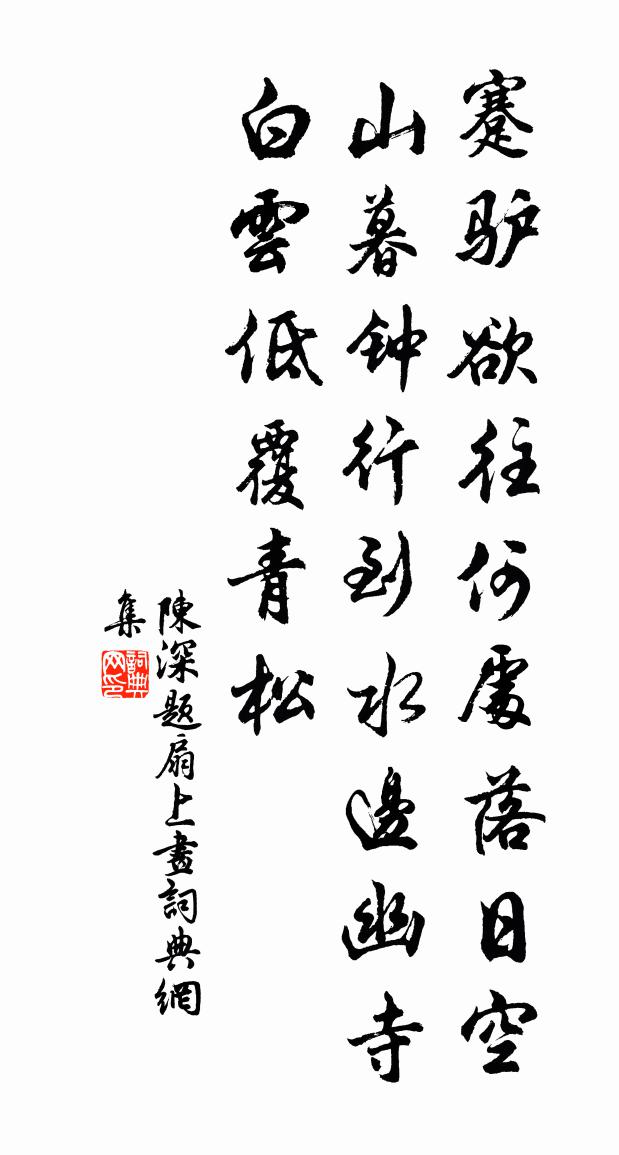 蹇驴欲往何處落日空
山暮钟行到水邊幽寺
白雲低覆青松
陳深题扇上畫詞典網
集
詞典网印